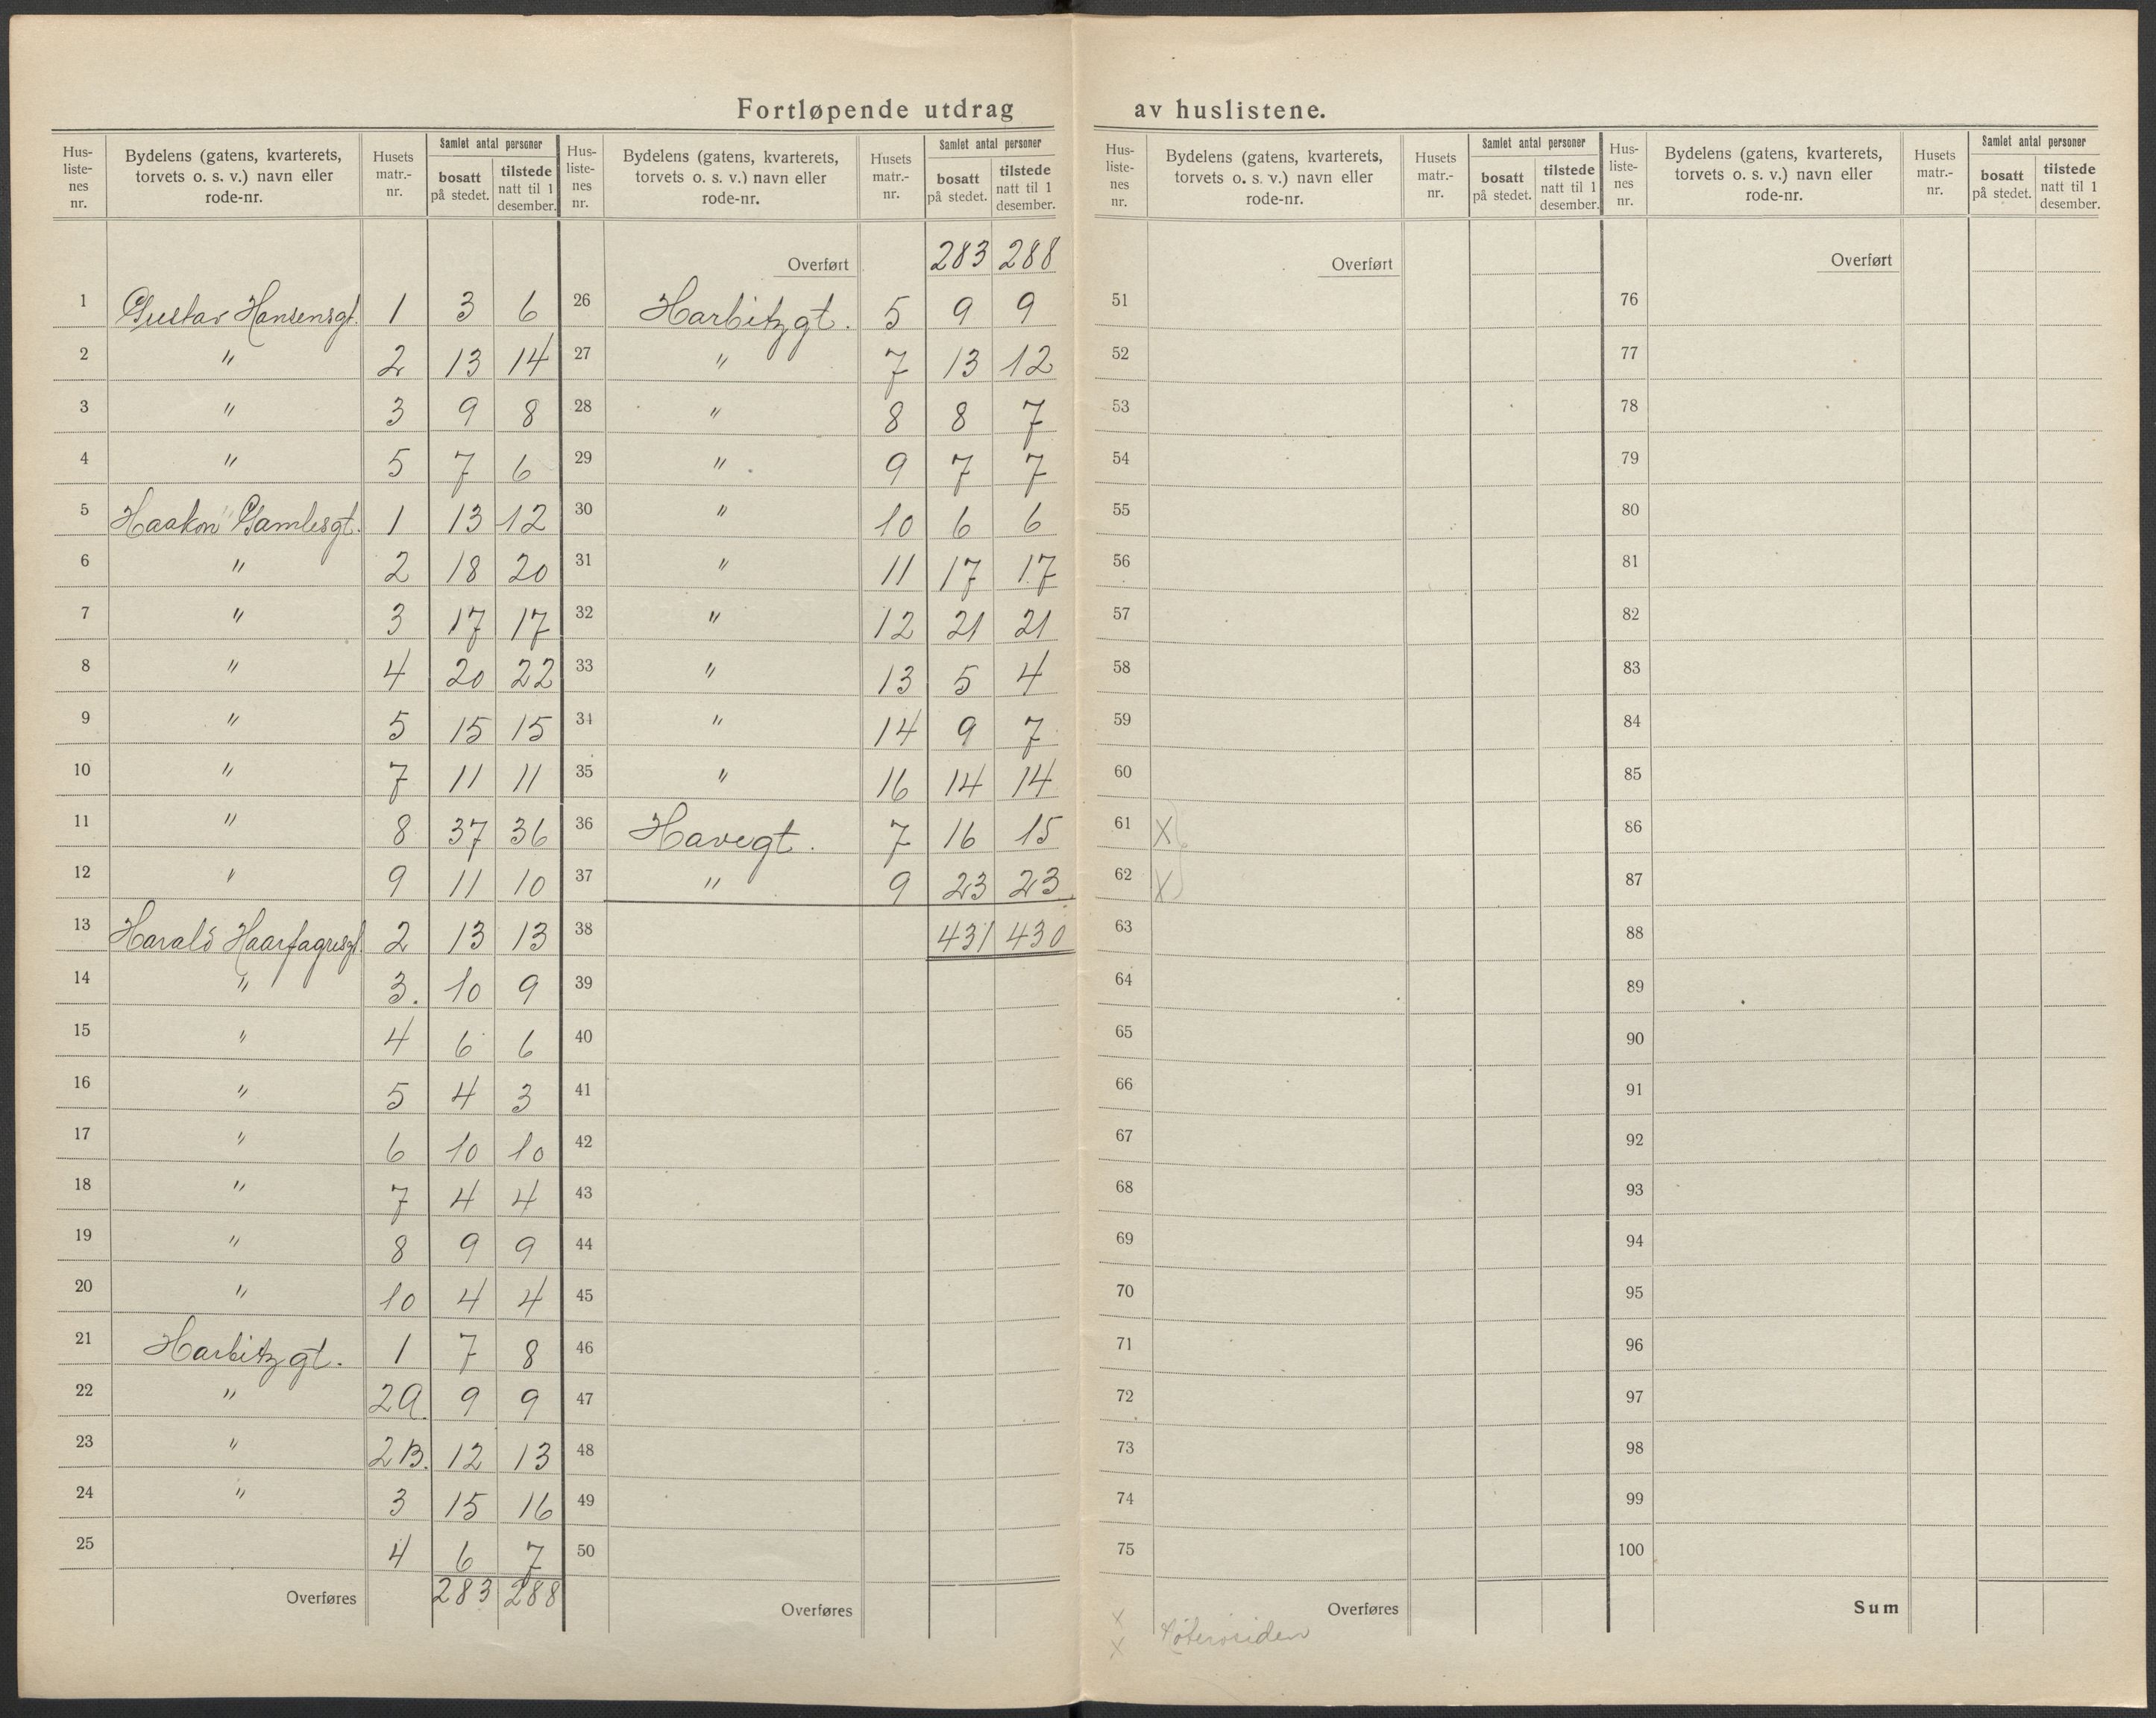 Fortløpende utdrag av huslistene.
Hus-listenes nr. Bydelens (gatens, kvarterets, torvets o. s. v.) navn eller rode-nr. Husets matr.-nr. Samlet antal personer bosatt på stedet. tilstede natt til 1 desember.
1 Gustav Hansensgt. 1 3 6
2 " 2 13 14
3 " 3 9 8
4 " 5 7 6
5 Haakon Gamlesgt. 1 13 12
6 " 2 18 20
7 " 3 17 17
8 " 4 20 22
9 " 5 15 15
10 " 7 11 11
11 " 8 37 36
12 " 9 11 10
13 Harald Haarfagresgt. 2 13 13
14 " 3. 10 9
15 " 4 6 6
16 " 5 4 3
17 " 6 10 10
18 " 7 4 4
19 " 8 9 9
20 " 10 4 4
21 Harbitzgt. 1 7 8
22 " 2A. 9 9
23 " 2B. 12 13
24 " 3 15 16
25 4 6 7
Overføres 283 288
Hus-listenes nr. Bydelens (gatens, kvarterets, torvets o. s. v.) navn eller rode-nr. Husets matr.-nr. Samlet antal personer bosatt på stedet. tilstede natt til 1 desember.
Overført 283 288
26 Harbitzgt. 5 9 9
27 " 7 13 12
28 " 8 8 7
29 " 9 7 7
30 " 10 6 6
31 " 11 17 17
32 " 12 21 21
33 " 13 5 4
34 " 14 9 7
35 " 16 14 14
36 Havegt. 7 16 15
37 " 9 23 23
38 431 430
39
40
41
42
43
44
45
46
47
48
49
50
Overføres
Hus-listenes nr. Bydelens (gatens, kvarterets, torvets o. s. v.) navn eller rode-nr. Husets matr.-nr. Samlet antal personer bosatt på stedet. tilstede natt til 1 desember.
Overført
51
52
53
54
55
56
57
58
59
60
61 X
62 X
63
64
65
66
67
68
69
70
71
72
73
74
75
Overføres
X
X
Hus-listenes nr. Bydelens (gatens, kvarterets, torvets o. s. v.) navn eller rode-nr. Husets matr.-nr. Samlet antal personer bosatt på stedet. tilstede natt til 1 desember.
Overført
76
77
78
79
80
81
82
83
84
85
86
87
88
89
90
91
92
93
94
95
96
97
98
99
100
Sum